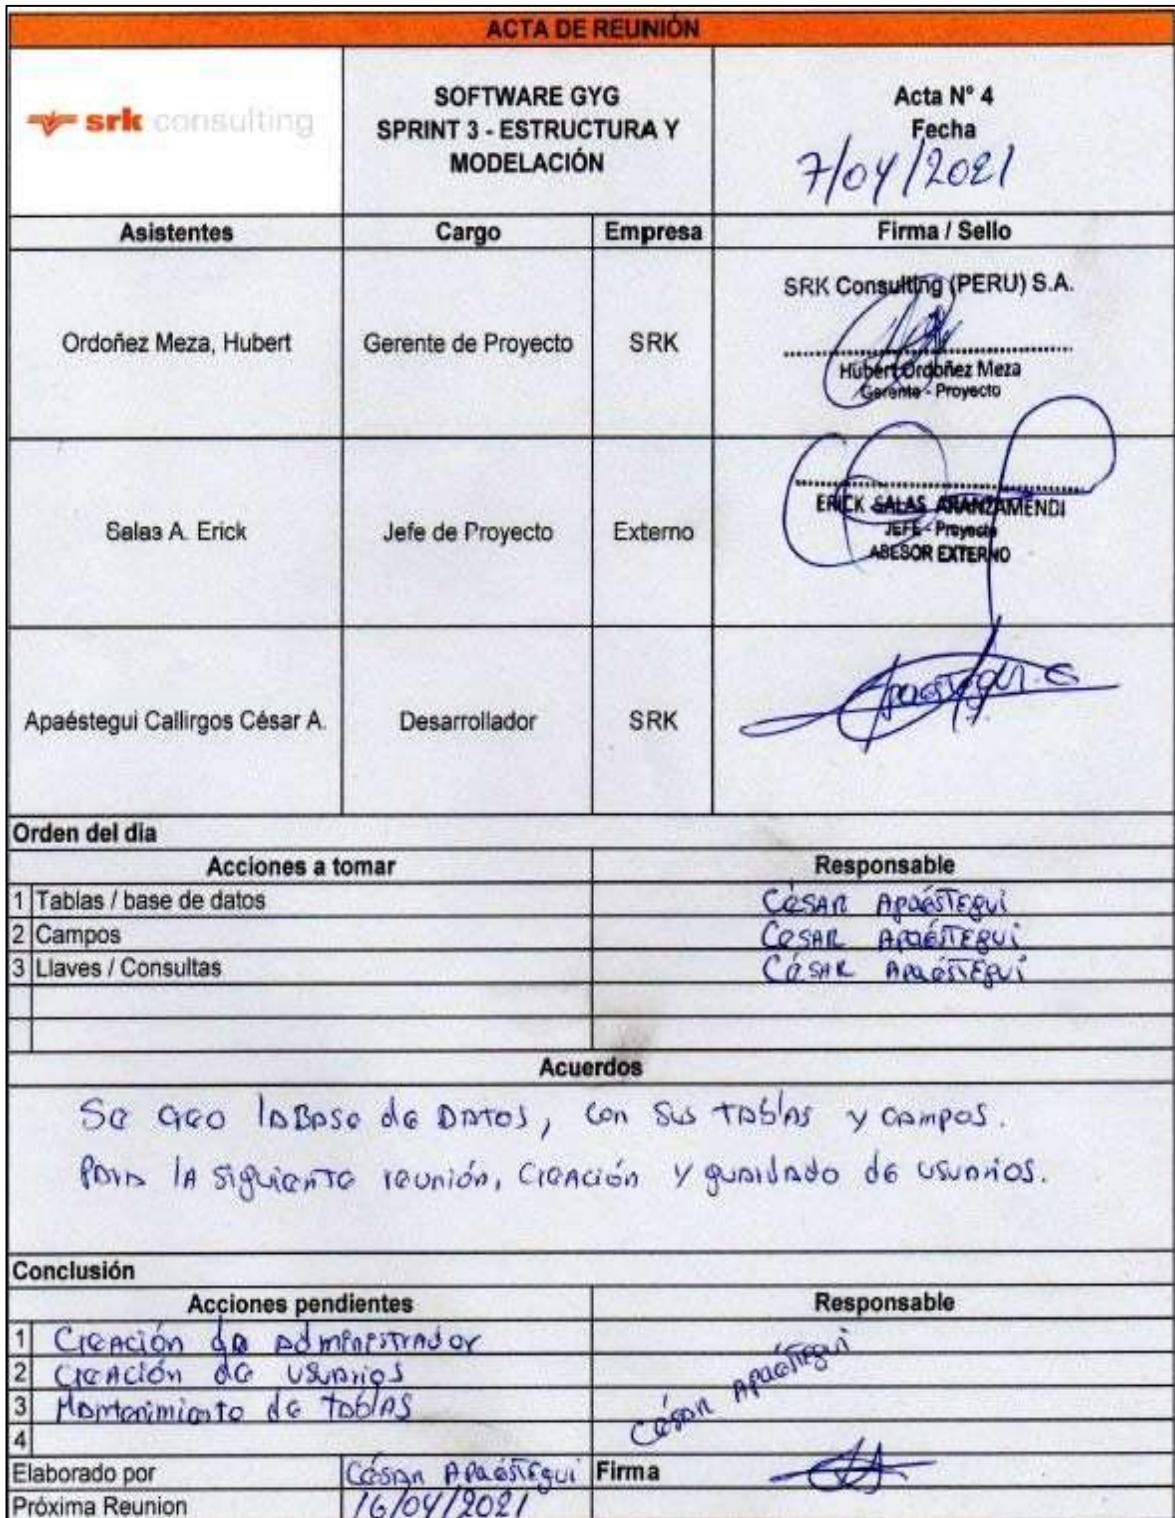 ACTA DE REUNIÓN
srk consulting
SOFTWARE GYG
SPRINT 3 - ESTRUCTURA Y
MODELACIÓN
Acta N° 4
Fecha
7/04/2021
Asistentes Cargo Empresa Firma / Sello
Ordoñez Meza, Hubert Gerente de Proyecto SRK
SRK Consulting (PERU) S.A.
Hubert Ordoñez Meza
Gerente - Proyecto
Salas A. Erick Jefe de Proyecto Externo
ERICK SALAS ARANZAMENDI
JEFE - Proyecto
ASESOR EXTERNO
Apaéstegui Callirgos César A. Desarrollador SRK
Apaéstegui C
Orden del dia
Acciones a tomar Responsable
1 Tablas / base de datos César Apaéstegui
2 Campos César Apaéstegui
3 Llaves / Consultas César Apaéstegui
Acuerdos
Se creo la Base de Datos, con sus tablas y campos.
Para la siguiente reunión, creación y guardado de usuarios.
Conclusión
Acciones pendientes Responsable
1 Creación de administrador
2 Creación de usuarios
3 Mantenimiento de tablas
4
César Apaéstegui
Elaborado por César Apaéstegui Firma
Próxima Reunion 16/04/2021